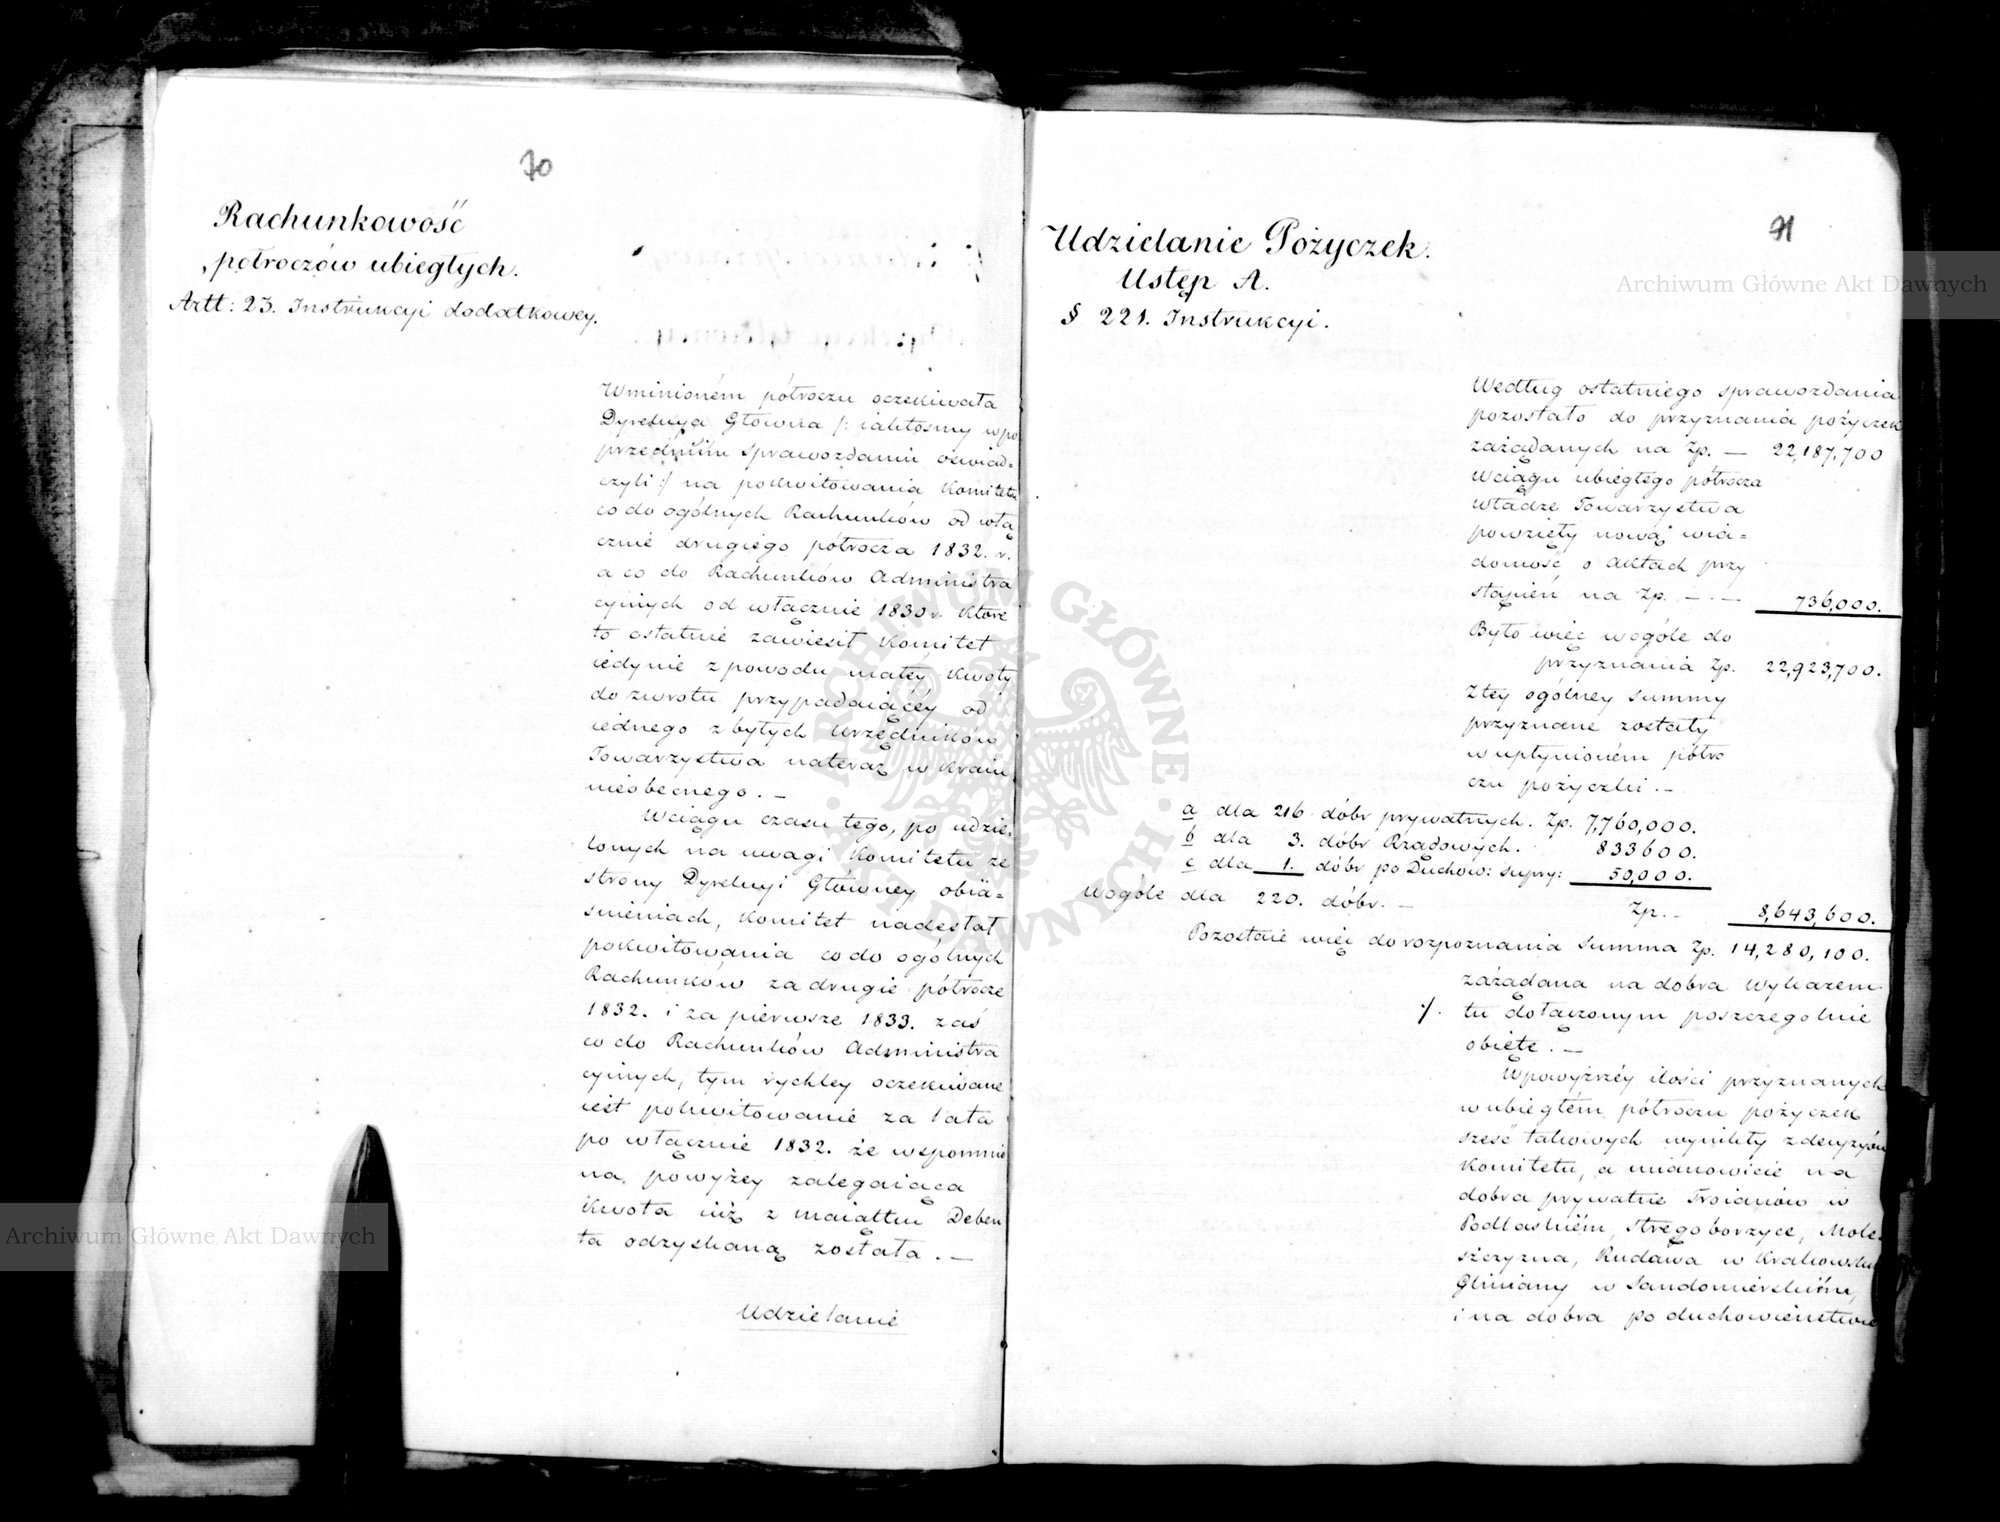 70
Rachunkowość
półroczów ubiegłych.
Artt: 23. Instrukcyi dodatkowey.
W minioném półroczu oczekiwała
Dyrekcya Główna /: iakżeśmy w po
przedniém sprawozdaniu oświad=
czyli :/ na pokwitowania Komitetu
co do ogólnych Rachunków od włą
cznie drugiego półrocza 1832. r.
a co do Rachunków Administra
cyinych od włącznie 1830 r. które
to ostatnie zawiesił Komitet
iedynie z powodu małéy kwoty
do zwrotu przypadaiącéy od
iednego z byłych urzędników
Towarzystwa nateraz w kraiu
nieobecnego. —
W ciągu czasu tego, po udzie=
lonych na uwagi Komitetu ze
strony Dyrekcyi Główney obia=
śnieniach, Komitet nadesłał
pokwitowania co do ogólnych
Rachunków za drugie półrocze
1832. i za pierwsze 1833. zaś
co do Rachunków Administra
cyinych, tym rychley oczekiwane
iest pokwitowanie za lata
po włącznie 1832. że wspomnio
na powyżey zalegaiąca
kwota iuż z maiątku Deben
ta odzyskaną została. —
Udzielanie
71
Udzielanie Pożyczek.
Ustęp A.
§ 221. Instrukcyi.
Według ostatniego sprawozdania
pozostało do przyznania pożyczek
zażądanych na Zp. — 22,187,700
W ciągu ubiegłego półrocza
Władze Towarzystwa
powzięły nową wia=
domość o Aktach przy
stąpień na Zp. — . — 736,000.
Było więc wogóle do
przyznania Zp. 22,923,700.
Z tey ogólney summy
przyznane zostały
w upłynioném półro
czu pożyczki. —
a dla 216 dóbr prywatnych. Zp. 7,760,000.
b dla 3. dóbr Rządowych. 833600.
c dla 1. dóbr po Duchow: supry: 50,000.
Wogóle dla 220. dóbr. — Zp. — 8,643,600.
Pozostaie więc do rozpoznania summa Zp. 14,280,100.
zażądana na dobra Wykazem
./. tu dołączonym poszczególnie
obięte. —
W powyższéy ilości przyznanych
w ubiegłém półroczu pożyczek
sześć takowych wynikły z decyzyów
Komitetu, a mianowicie na
dobra prywatne Troianów w
Podlaskiém, Stręgoborzyce, Mole=
szczyzna, Rudawa w Krakowskiem
Gliniany w Sandomierskiém,
i na dobra po duchowieństwie
Archiwum Główne Akt Dawnych
Archiwum Główne Akt Dawnych
ARCHIWUM GŁÓWNE AKT DAWNYCH